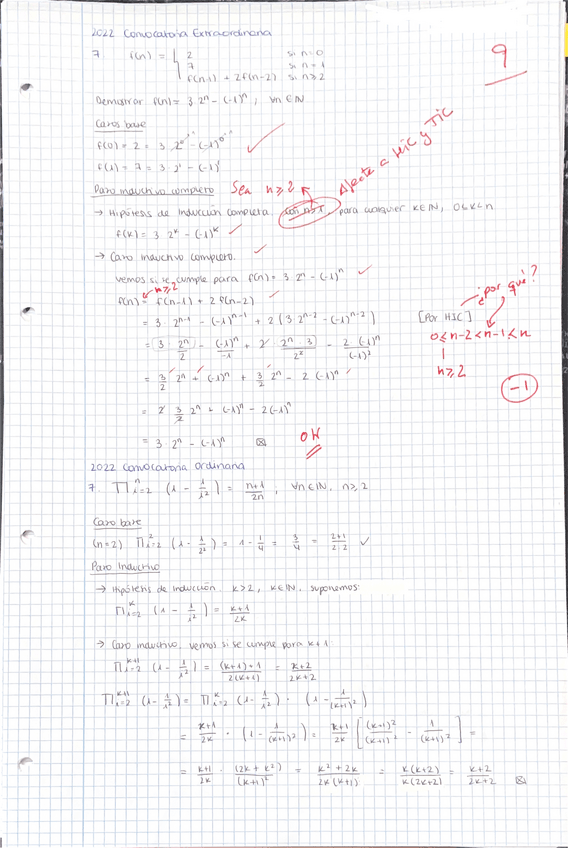 2022 Convocatoria Extraordinaria
9
7. f(n) = { 2 si n=0
7 si n=1
f(n-1) + 2f(n-2) si n≥2
Demostrar f(n) = 3·2ⁿ - (-1)ⁿ, ∀n∈ℕ
Casos base
f(0) = 2 = 3·2⁰ - (-1)⁰
f(1) = 7 = 3·2¹ - (-1)¹
Paso inductivo completo Sea n≥2 Afecta a HIC y TIC
→ Hipótesis de Inducción Completa: con n>1, para cualquier k∈ℕ, 0≤k<n
f(k) = 3·2ᵏ - (-1)ᵏ ✓
→ Caso inductivo completo. ✓
Vemos si se cumple para f(n) = 3·2ⁿ - (-1)ⁿ ✓
n≥2
f(n) = f(n-1) + 2f(n-2) ✓ ¿por qué?
= 3·2ⁿ⁻¹ - (-1)ⁿ⁻¹ + 2(3·2ⁿ⁻² - (-1)ⁿ⁻²) [Por HIC]
= 3·2ⁿ/2 - (-1)ⁿ/-1 + 2·2ⁿ·3/2² - 2(-1)ⁿ/(-1)² 0≤n-2<n-1<n
= 3/2 2ⁿ + (-1)ⁿ + 3/2 2ⁿ - 2(-1)ⁿ n≥2
-1
= 2 3/2 2ⁿ + (-1)ⁿ - 2(-1)ⁿ
= 3·2ⁿ - (-1)ⁿ ⊠ OK
2022 Convocatoria Ordinaria
7. ∏ⁿᵢ₌₂ (1 - 1/i²) = n+1/2n, ∀n∈ℕ, n≥2
Caso base
(n=2) ∏²ᵢ₌₂ (1 - 1/2²) = 1 - 1/4 = 3/4 = 2+1/2·2 ✓
Paso Inductivo
→ Hipótesis de Inducción. k>2, k∈ℕ, suponemos:
∏ᵏᵢ₌₂ (1 - 1/i²) = k+1/2k
→ Caso inductivo, vemos si se cumple para k+1
∏ᵏ⁺¹ᵢ₌₂ (1 - 1/i²) = (k+1)+1/2(k+1) = k+2/2k+2
∏ᵏ⁺¹ᵢ₌₂ (1 - 1/i²) = ∏ᵏᵢ₌₂ (1 - 1/i²) · (1 - 1/(k+1)²)
= k+1/2k · (1 - 1/(k+1)²) = k+1/2k [(k+1)²/(k+1)² - 1/(k+1)²] =
= k+1/2k · (2k+k²)/(k+1)² = k²+2k/2k(k+1) = k(k+2)/k(2k+2) = k+2/2k+2 ⊠